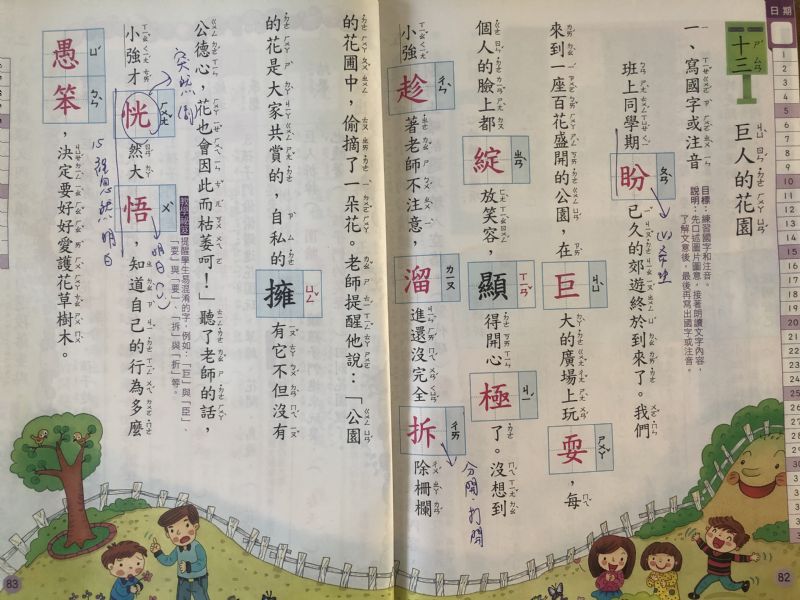 日期
十三
巨人的花園
一、寫國字或注音
目標:練習國字和注音。
說明:先口述圖片圖意,接著朗讀文字內容,
了解文意後,最後再寫出國字或注音。
班上同學期盼已久的郊遊終於到來了。我們
(V)希望
來到一座百花盛開的公園,在巨大的廣場上玩耍,每
個人的臉上都綻放笑容,顯得開心極了。沒想到
小強趁著老師不注意,溜進還沒完全拆除柵欄
分開、打開
的花圃中,偷摘了一朵花。老師提醒他說:「公園
的花是大家共賞的,自私的擁有它不但沒有
公德心,花也會因此而枯萎呵!」聽了老師的話,
教學秘笈
提醒學生易混淆的字,例如:「巨」與「臣」、
「耍」與「要」、「拆」與「折」等。
突然間
小強才恍然大悟,知道自己的行為多麼
明白
愚笨,決定要好好愛護花草樹木。
82
83